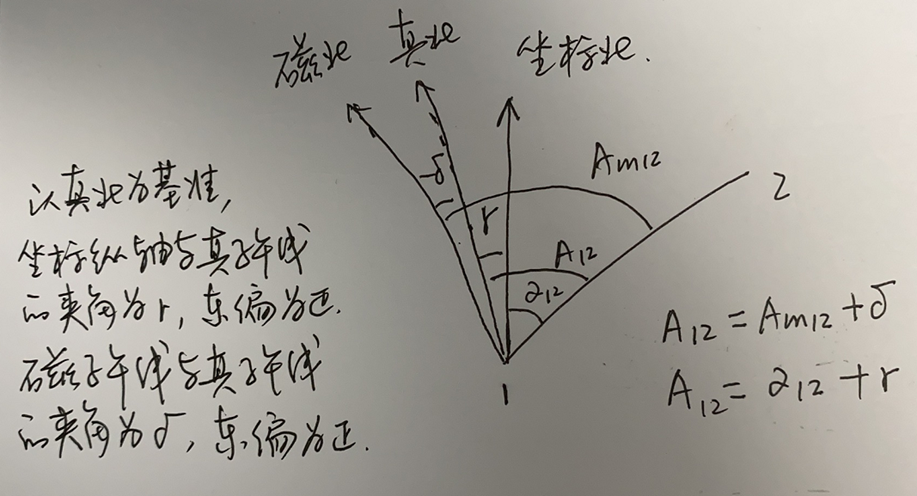 磁北 真北 坐标北.
δ
r
Am12
2
A12
α12
1
以真北为基准,
坐标纵轴与真子午线
的夹角为r, 东偏为正.
磁子午线与真子午线
的夹角为δ, 东偏为正.
A12 = Am12 + δ
A12 = α12 + r